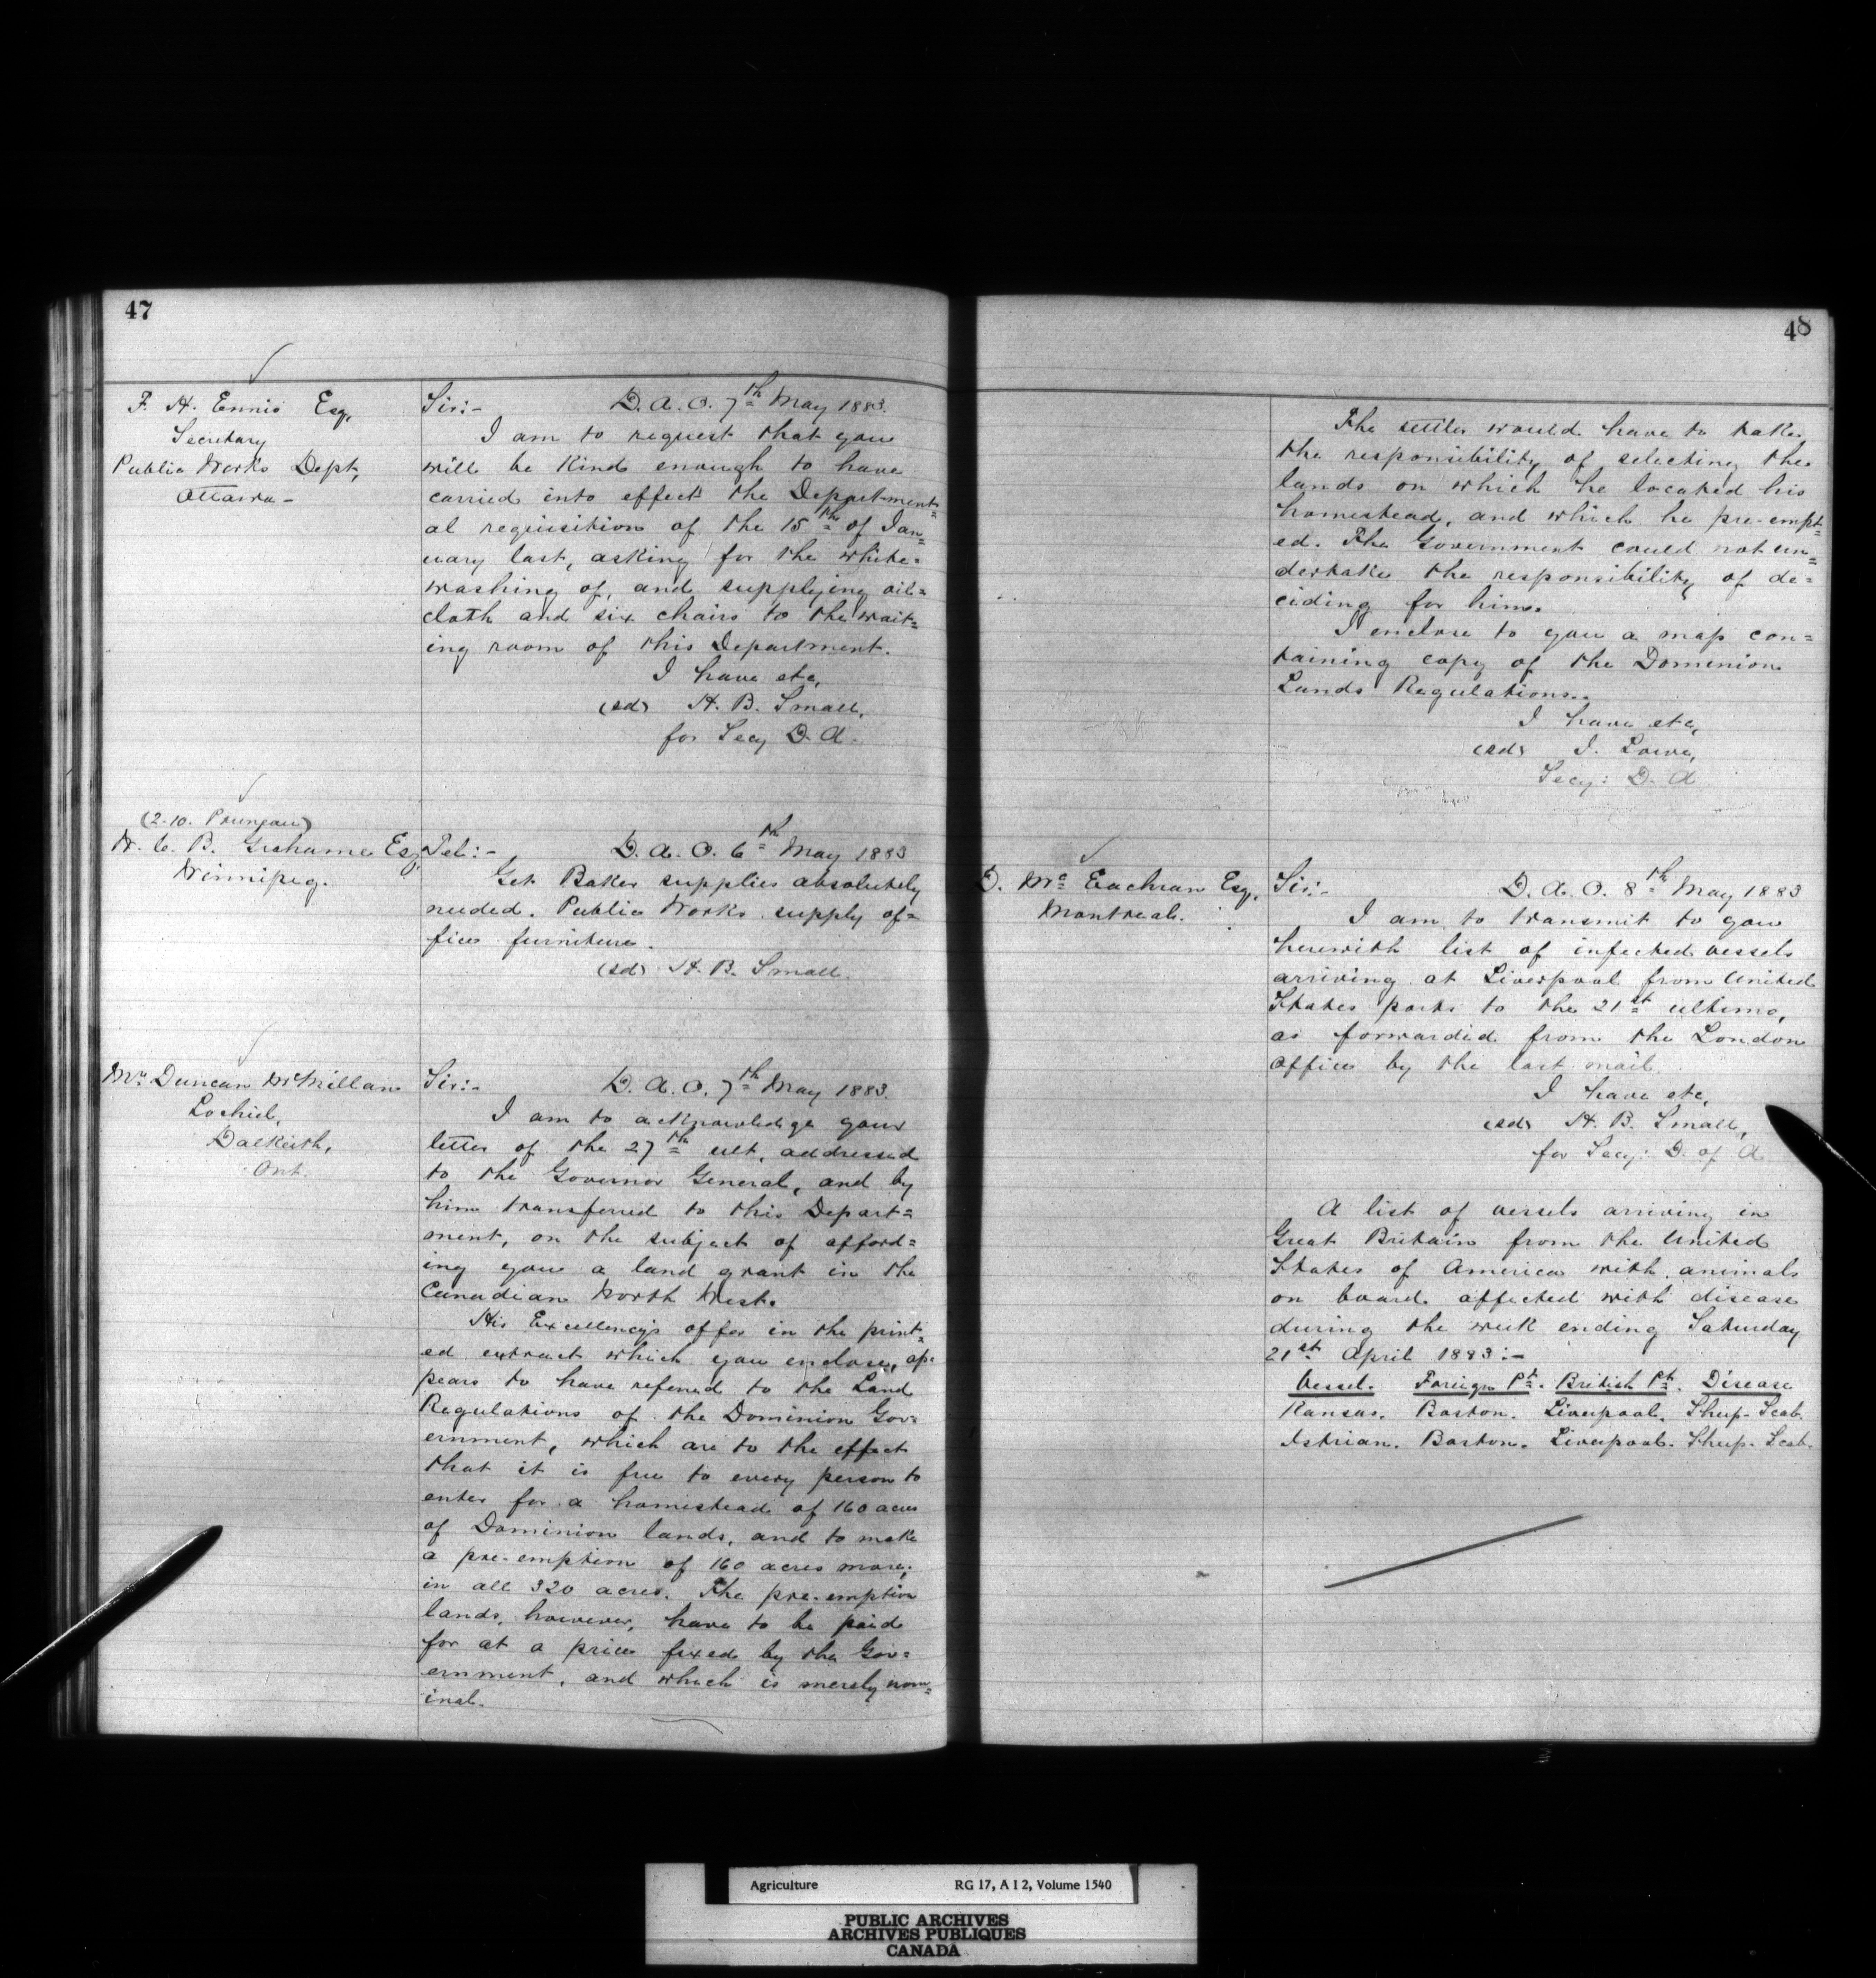 47
F. H. Ennis Esq,
Secretary
Public Works Dept,
Ottawa -
Sir:- D. A. O. 7th May 1883.
I am to request that you
will be kind enough to have
carried into effect the Department=
al requisition of the 15th of Jan=
uary last, asking for the white=
washing of, and supplying oil=
cloth and six chairs to the wait=
ing room of this Department.
I have etc,
(sd) H. B. Small,
for Secy D. A.
(2.10.
W. C. B. Grahame Esq,
Winnipeg.
Tel:- D. A. O. 6th May 1883
Get Baker supplies absolutely
needed. Public Works supply of=
fice furniture.
(sd) H. B. Small.
Mr. Duncan McMillan
Lochiel,
Dalkeith,
Ont.
Sir:- D. A. O. 7th May 1883.
I am to acknowledge your
letter of the 27th ult, addressed
to the Governor General, and by
him transferred to this Depart=
ment, on the subject of afford=
ing you a land grant in the
Canadian North West.
His Excellency's offer in the print=
ed extract which you enclose, ap=
pears to have referred to the Land
Regulations of the Dominion Gov=
ernment, which are to the effect
that it is free to every person to
enter for a homestead of 160 acres
of Dominion lands, and to make
a pre-emption of 160 acres more;
in all 320 acres. The pre-emption
lands, however, have to be paid
for at a price fixed by the Gov=
ernment, and which is merely nom=
inal.
48
The settler would have to take
the responsibility of selecting the
lands on which he located his
homestead, and which he pre-empt=
ed. The Government could not un=
dertake the responsibility of de=
ciding for him.
I enclose to you a map con=
taining copy of the Dominion
Lands Regulations.
I have etc,
(sd) J. Lowe,
Secy: D. A
D. McEachran Esq,
Montreal.
Sir:- D. A. O. 8th May 1883
I am to transmit to you
herewith list of infected vessels
arriving at Liverpool from United
States ports to the 21st ultimo,
as forwarded from the London
office by the last mail.
I have etc,
(sd) H. B. Small,
for Secy: D. of A
A list of vessels arriving in
Great Britain from the United
States of America with animals
on board affected with disease
during the week ending Saturday
21st April 1883:-
Vessel. Foreign Pt. British Pt. Disease
Kansas. Boston. Liverpool. Sheep-Scab.
Istrian. Boston. Liverpool. Sheep-Scab.
Agriculture RG 17, A I 2, Volume 1540
PUBLIC ARCHIVES
ARCHIVES PUBLIQUES
CANADA